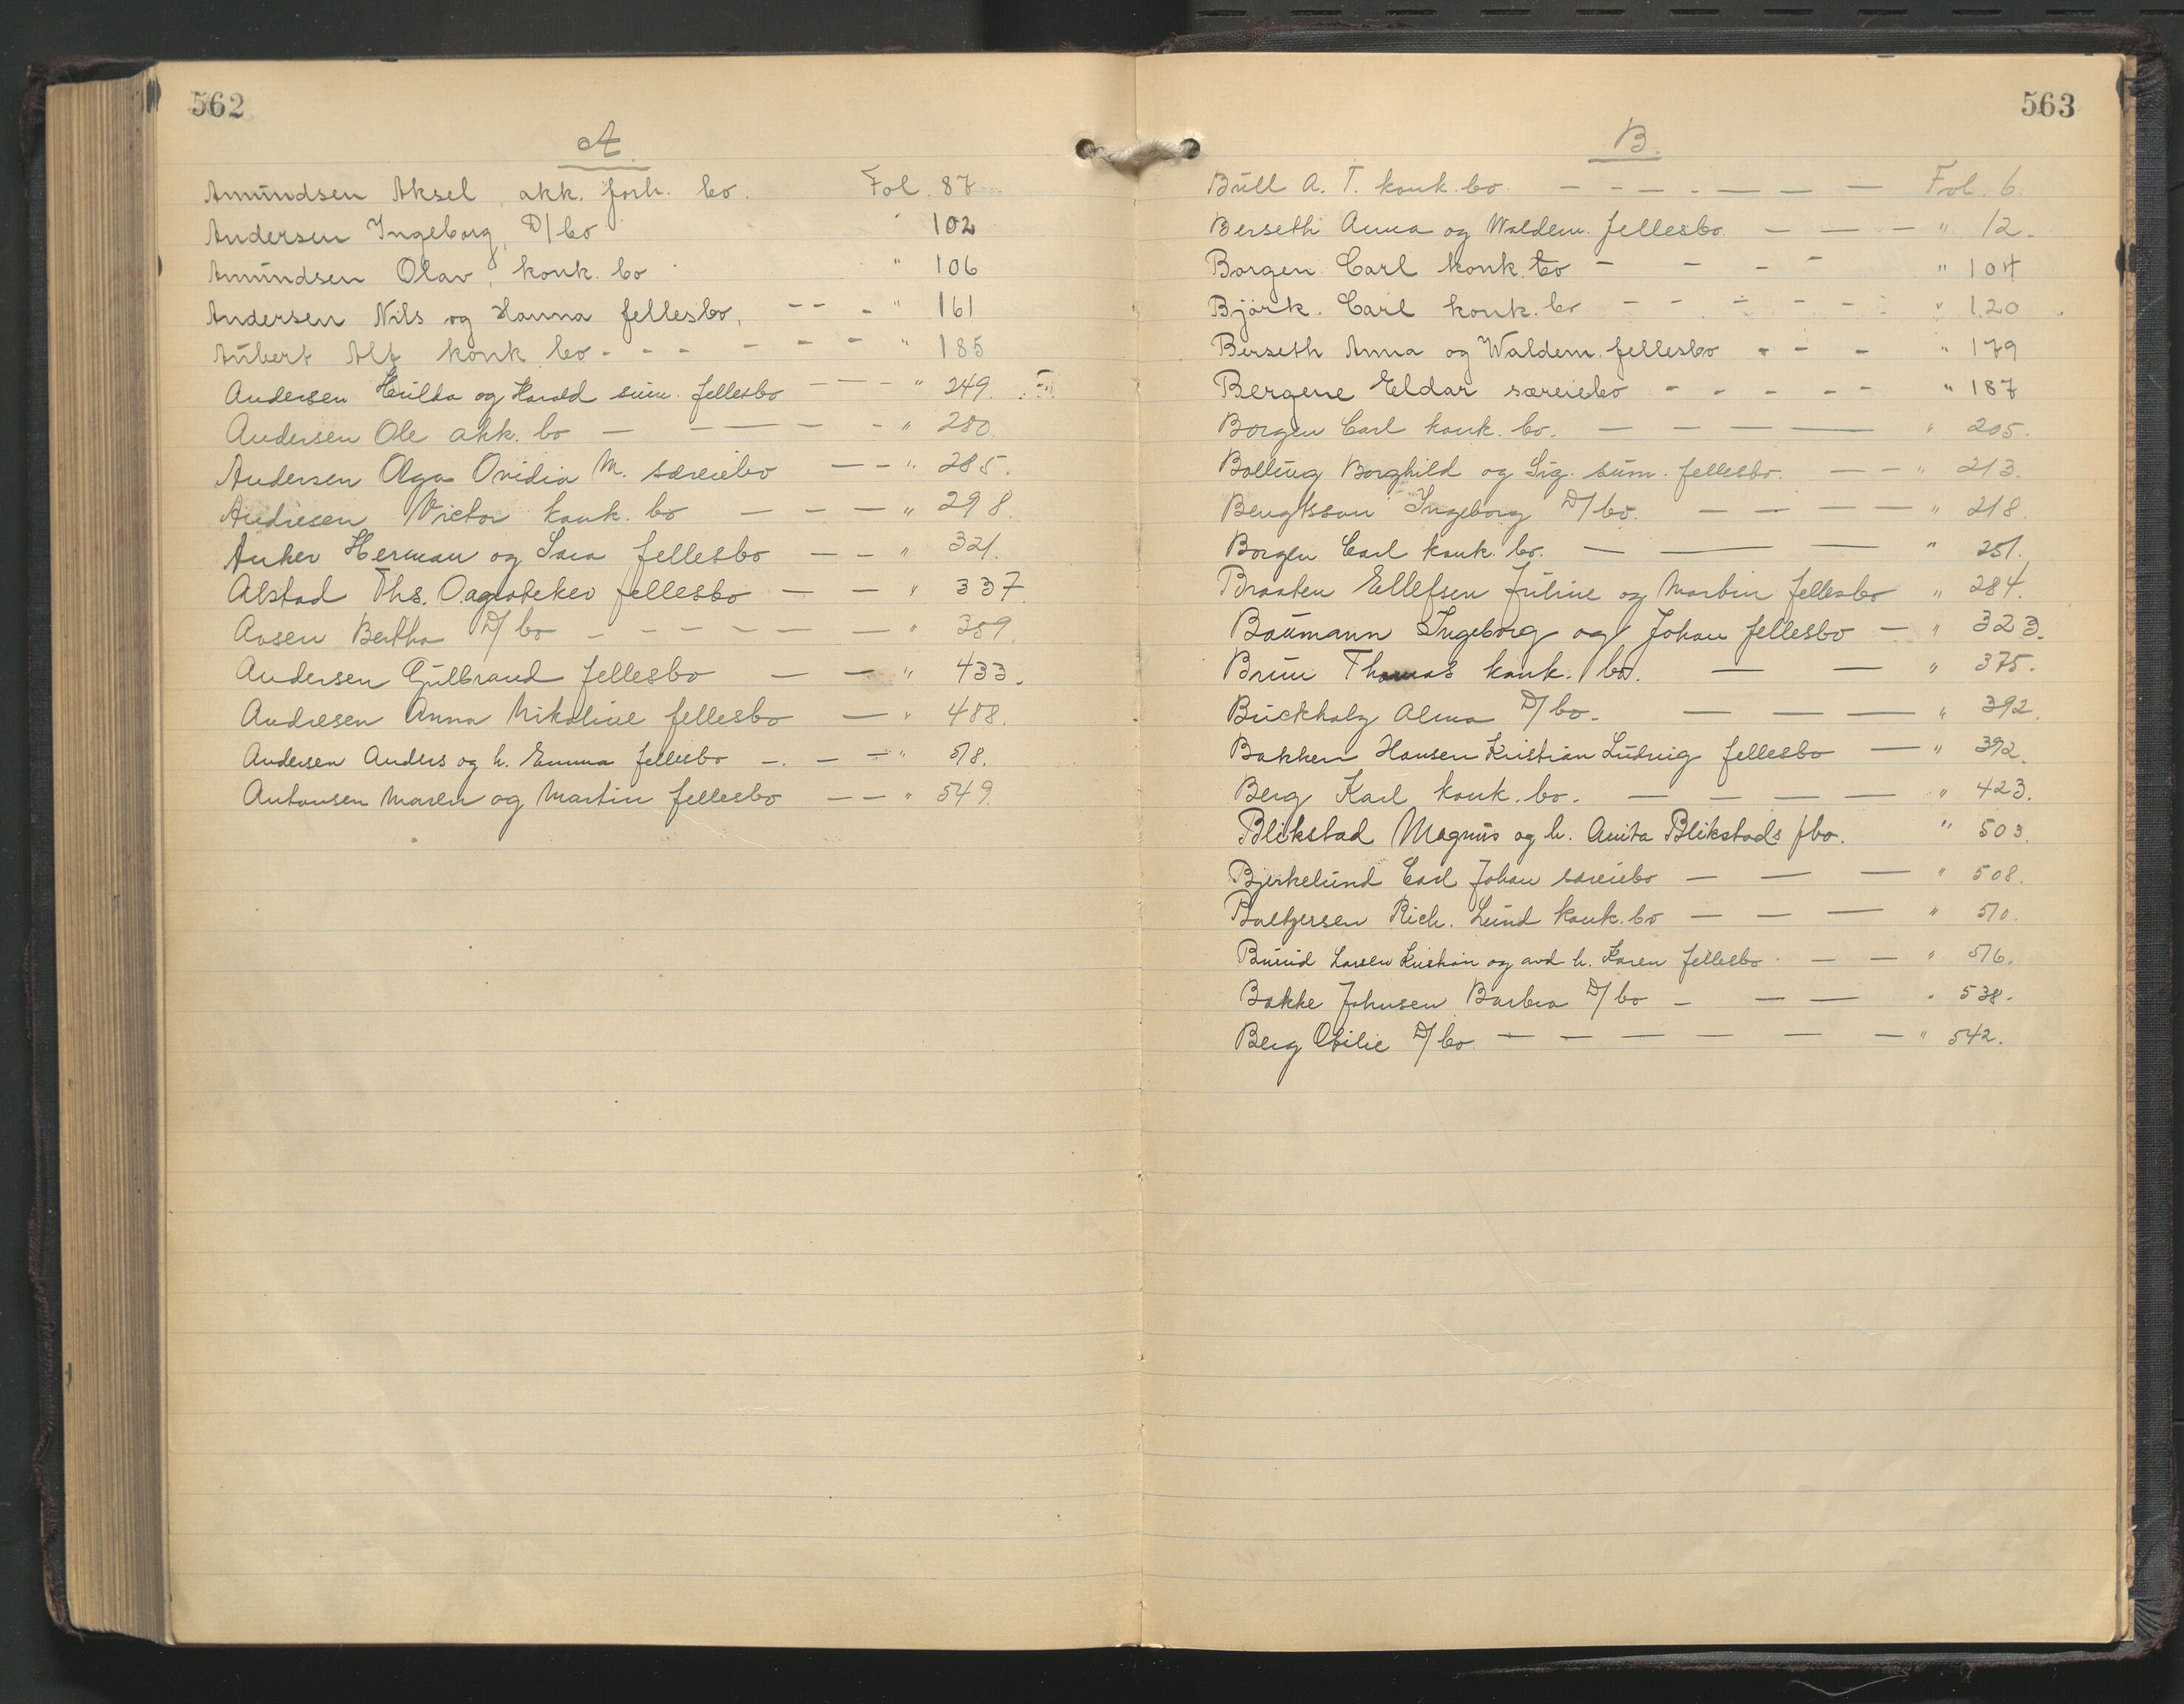 562
A.
Amundsen Aksel, akk. forh. bo. Fol. 87
Andersen Ingeborg, D/bo " 102
Amundsen Olav, konk. bo " 106
Andersen Nils og Hanna fellesbo, - - - " 161
Aubert Alf konk bo - - - - - - - " 185
Andersen Hulda og Harald sum. fellesbo - - - " 249.
Andersen Ole akk. bo - - - - - " 280.
Andersen Olga Ovidia M. særeiebo - - " 285.
Andresen Victor konk. bo - - - " 298.
Anker Herman og Sara fellesbo - - " 321.
Alstad Ths. O. apoteker fellesbo - - " 337
Aasen Bertha D/bo - - - - - - - " 359.
Andersen Gulbrand fellesbo - - " 433.
Andresen Anna Nikoline fellesbo - " 488.
Andersen Anders og h. Emma fellesbo - - - " 518.
Antonsen Maren og Martin fellesbo - - " 549
563
B.
Bull A. T. konk. bo. - - - - - - - Fol. 6.
Berseth Anna og Waldem. fellesbo. - - - " 12.
Borgen Carl konk. bo - - - - " 104
Björk. Carl konk. bo - - - - - - " 120
Berseth Anna og Waldem. fellesbo - - - " 179
Bergene Eldar særeiebo - - - - - " 187
Borgen Carl konk. bo. - - - - " 205.
Bolling Borghild og Sig. sum. fellesbo. - - " 213.
Bengtsson Ingeborg D/bo. - - - - " 218.
Borgen Carl konk. bo. - - - " 251.
Braaten Ellefsen Juline og Martin fellesbo " 284.
Baumann Ingeborg og Johan fellesbo - " 323.
Brun Thomas konk. bo. - - " 375.
Buckholz Alma D/bo. - - - " 392.
Bakken Hansen Kristian Ludvig fellesbo - " 392.
Berg Karl konk. bo. - - - - " 423.
Blikstad Magnus og h. Anita Blikstads fbo. " 503.
Bjerkelund Carl Johan særeiebo - - - " 508.
Baltzersen Rich. Lund konk. bo - - - " 510.
Larsen Kristian og avd. h. Karen fellesbo. - - " 516.
Bakke Johnsen Barbra D/bo - - - " 538.
Berg Otilie D/bo - - - - - - - " 542.